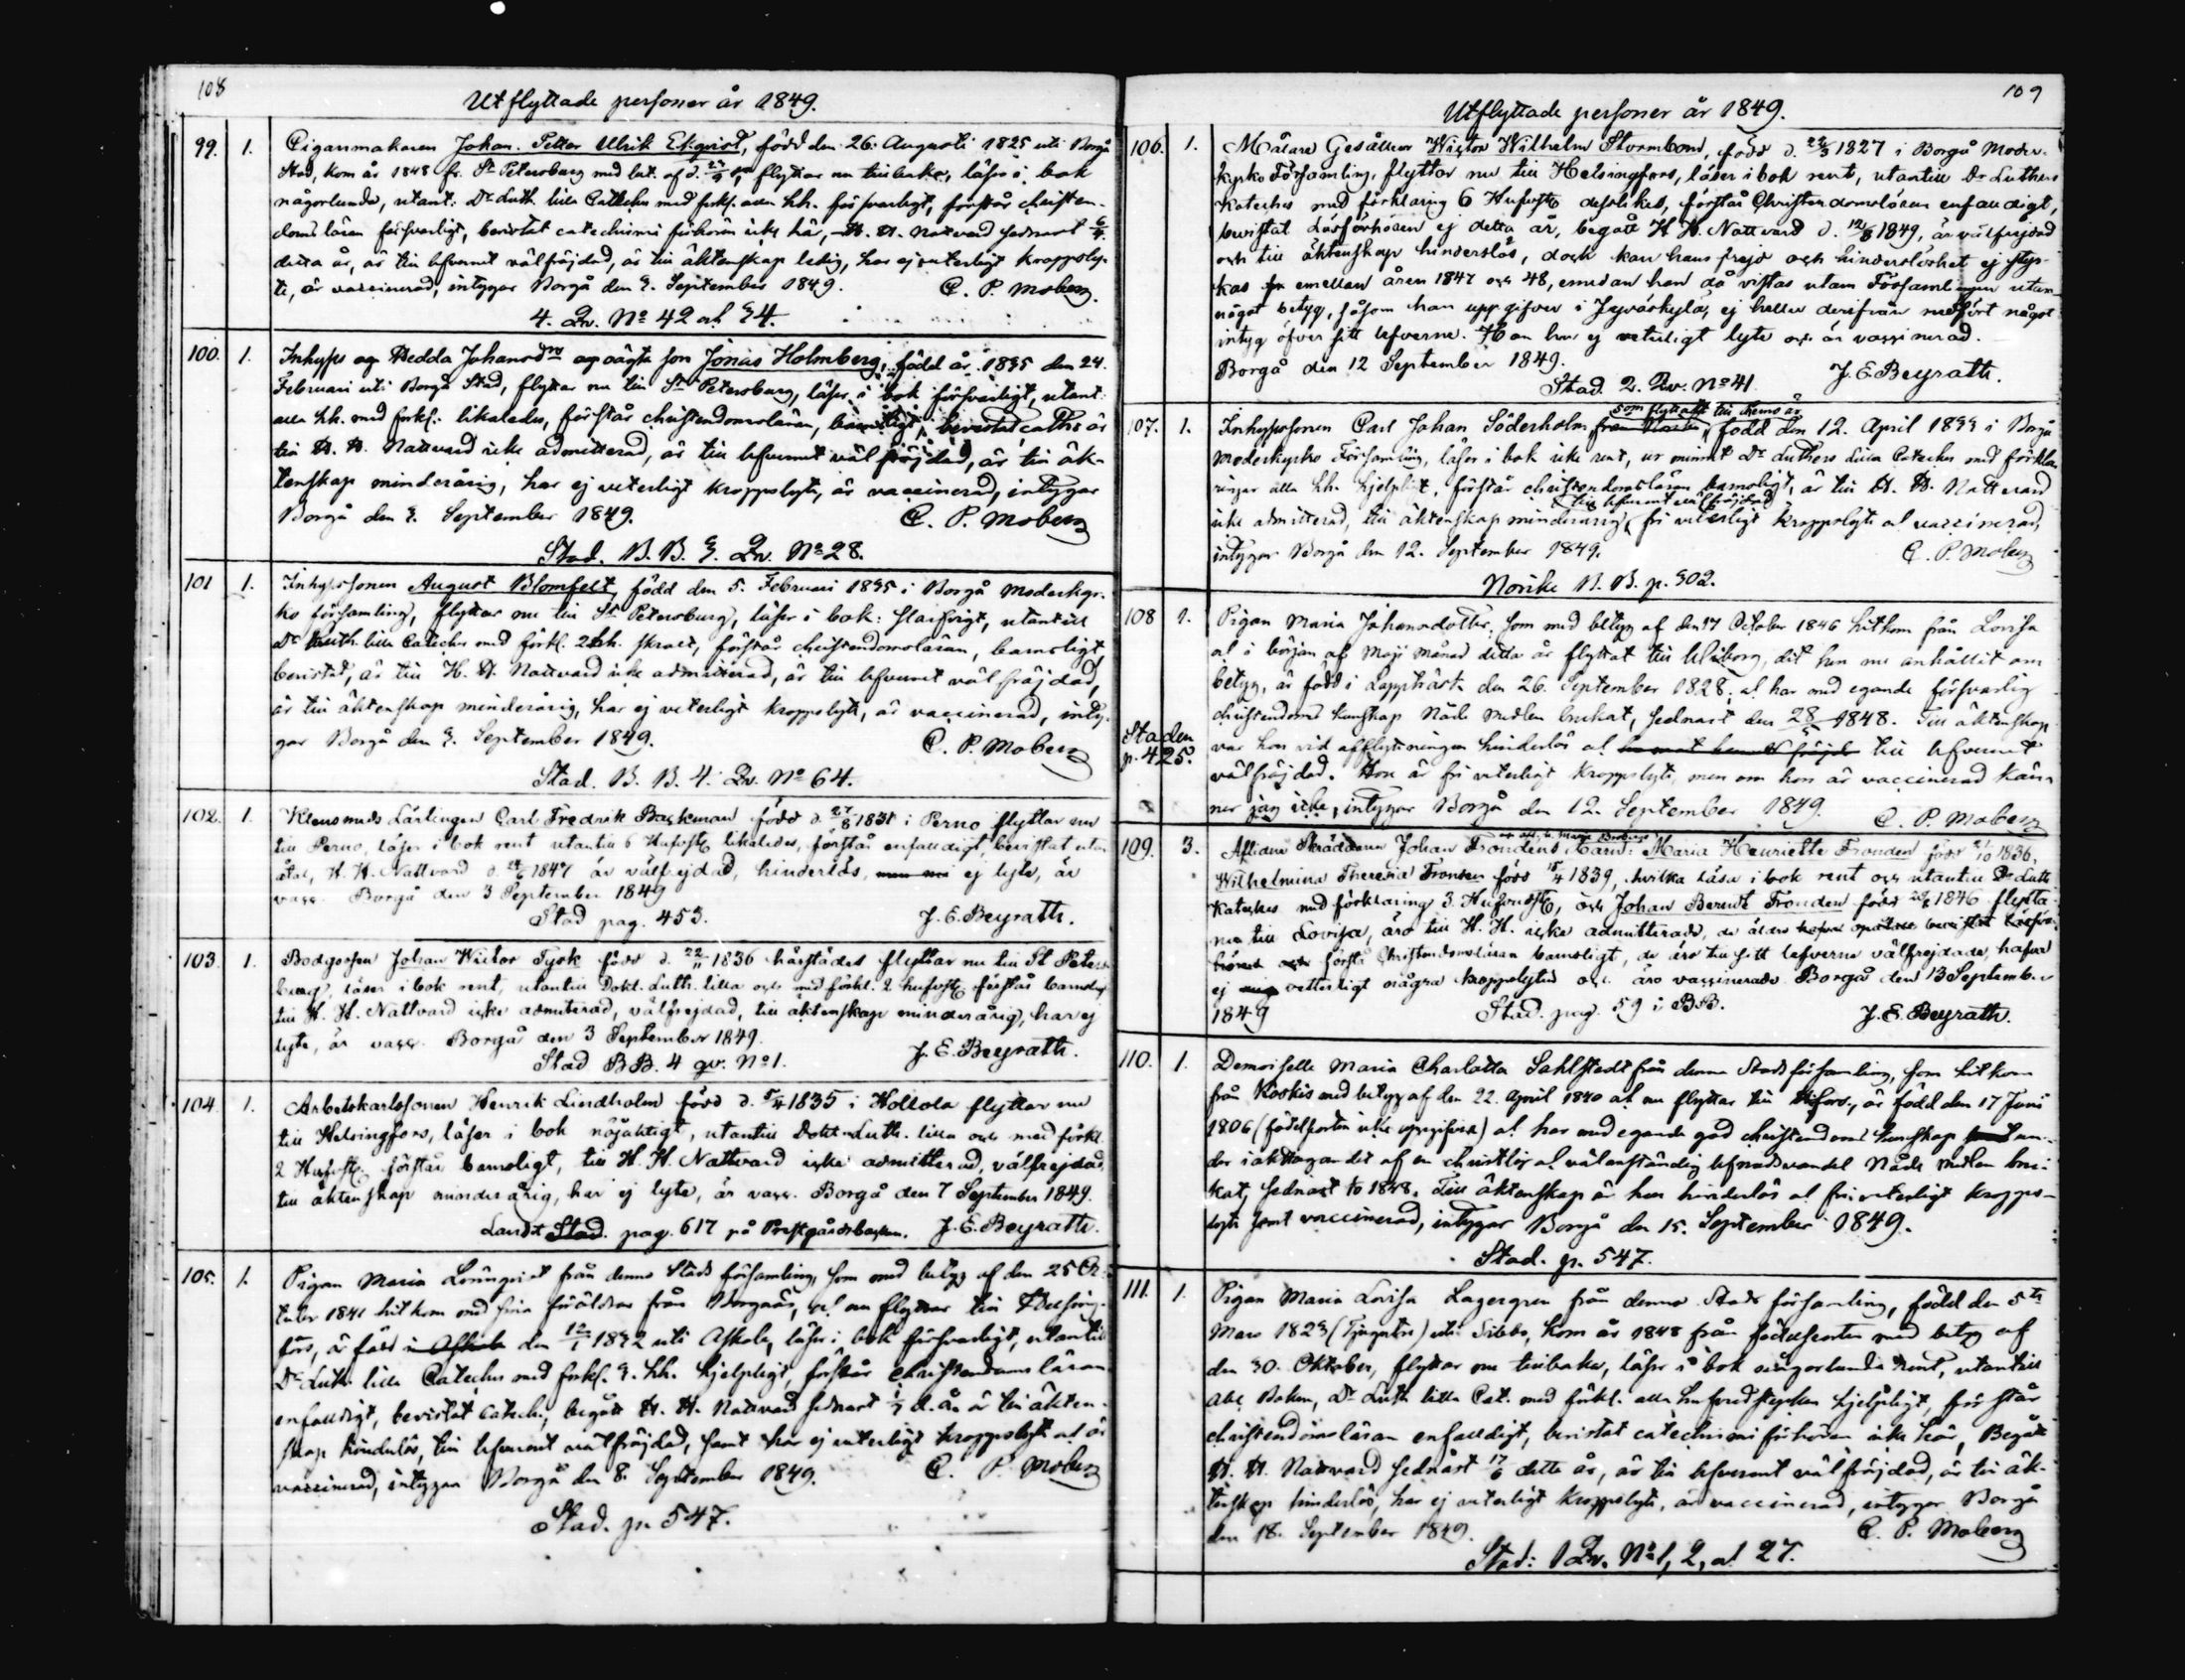 108
Utflyttade personer år 1849.
99. 1. Cigarrmakaren Johan Petter Ulrik Ekqvist, född den 26. Augusti 1825 uti Borgå
Stad, kom år 1848 fr. St Petersburg med bet. af d. flyttar nu tillbaka, läser i bok
någorlunda, utant. Dr Luth. lilla Catches med förkl. alla hh. försvarligt, förstår christen-
doms läran försvarligt, bevistat catechismi förhören icke här, H. H. Nattvard sednast
detta år, är till lefvernet välfräjdad, är till äktenskap ledig, har ej veterligt kroppsly-
te, är vaccinerad, intygar Borgå den 3. September 1849. C. P. Moberg.
4. Qv. No 42 och 34.
100. 1. Inhyses Hedda Johansdr oägta son Jonas Holmberg, född år 1835 den 24.
Februari uti Borgå Stad, flyttar nu till St Petersburg, läser i bok försvarligt, utant.
alla hh. med förkl. likaledes, förstår christendomsläran, barnsligt, bevistat är
till H. H. Nattvard icke admitterad, är till lefvernet väl fräjdad, är till äk-
tenskap minderårig, har ej veterligt kroppslyte, är vaccinerad, intygar
Borgå den 3. September 1849. C. P. Moberg
Stad. B. B. 3. Qv. No 28.
101 1. Inhysessonen August Blomfelt, född den 5. Februari 1835 i Borgå Moderkyr-
ko församling, flyttar nu till St Petersburg, läser i bok: slarfvigt, utantill
Dr Luth. lilla Cateches med förkl. 2 hh. skralt, förstår christendomsläran, barnsligt
bevistat, är till H. H. Nattvard icke admitterad, är till lefvernet väl fräjdad,
är till äktenskap minderårig, har ej veterligt kroppslyte, är vaccinerad, inty-
gar Borgå den 3. September 1849. C. P. Moberg
Stad. B. B. 4. Qv. No 64.
102. 1. Klensmeds Lärlingen Carl Fredrik Backman född d. 27/8 1831 i Perno flyttar nu
till Perno, läser i bok rent utantill 6 Hufvst likaledes, förstår enfaldigt, bevistat
H. H. Nattvard 1847 är välfrejdad, hinderlös, ej lyte, är
vacc. Borgå den 3 September 1849
Stad pag. 453. J. E. Beyrath.
103. 1. Johan Wictor Tysk född d. 22/11 1836 härstädes flyttar nu till St Peters-
burg, läser i bok rent, utantill Dokt. Luth. lilla och med förkl. 2 hufvst förstår barnsligt
till H. H. Nattvard icke admitterad, välfrejdad, till äktenskap minderårig, har ej
lyte, är vacc. Borgå den 3 September 1849.
Stad BB. 4 qv. No 1. J. E. Beyrath.
104. 1. Arbetskarlssonen Henrik Lindholm född d. 1835 i Hollola flyttar nu
till Helsingfors, läser i bok nöjaktigt, utantill Doktor Luth. lilla och med förkl.
2 Hufvst. förstår barnsligt, till H. H. Nattvard icke admitterad, välfrejdad,
till äktenskap minderårig, har ej lyte, är vacc. Borgå den 7 September 1849.
Landt Stad. pag. 617 på Prestgårdsbacken. J. E. Beyrath.
105. 1. Pigan Maria Lönnqvist från denna Stads församling, som med betyg af den 25 Oc-
tober 1841 hitkom med sina föräldrar från Borgnäs, och nu flyttar till Helsing-
fors, är född i Askola den 1832 uti Askola, läser i bok försvarligt, utantill
Dr Luth. lilla Catechis med förkl. 3. hh. hjelpligt, förstår Christendomsläran
enfaldigt, bevistat Catech., begått H. H. Nattvard sednast d. år är till äkten-
skap hinderlös, till lefvernet välfräjdad, samt har ej veterligt kroppslyte och är
vaccinerad, intygar Borgå den 8. September 1849. C. P. Moberg
Stad. p. 547.
109
Utflyttade personer år 1849.
106. 1. Målare Gesällen Wictor Wilhelm Strömbom, född d. 1827 i Borgå Moder-
kyrko Församling, flyttar nu till Helsingfors, läser i bok rent, utantill Dr Luthers
Kateches med förklaring 6 Hufvst desslikes, förstår Christendomsläran enfaldigt,
bevistat Läsförhören ej detta år, begått H. H. Nattvard d. 12/8 1849, är välfrejdad
och till äktenskap hinderslös, dock kan hans frejd och hinderslöshet ej styr-
kas emellan åren 1847 och 48, emedan han då vistas utom Församlingen utan
något betyg, såsom han uppgifver i Jyväskylä, ej heller derifrån medfört något
intyg öfver sitt lefverne. Han har ej veterligt lyte och är vaccinerad.
Borgå den 12 September 1849. J. E. Beyrath.
Stad. 2. Qv. No 41.
som flyttat till hemo är
107. 1. Inhysessonen Carl Johan Söderholm född den 12. April 1833 i Borgå
Moderkyrko Församling, läser i bok icke rent, ur minnet Dr Luthers Lilla Catechis med förkla-
ringar alla hh. hjelpligt, förstår christendomsläran barnsligt, är till H. H. Nattvard
till lefvernet välfräjdad
icke admitterad, till äktenskap minderårig, fri veterligt kroppslyte och vaccinerad,
intygar Borgå den 12. September 1849. C. P. Moberg
Norike B. B. p. 302.
108 1. Pigan Maria Johansdotter, som med betyg af den 17 October 1846 hitkom från Lovisa
och i början af Maji månad detta år flyttat till Wiborg, dit hon nu anhållit om
betyg, är född i Lappträsk den 26. September 1828, och har med egande försvarlig
christendoms kunskap Nåde medlen brukat, sednast den 1848. Till äktenskap
Staden
p. 425.
var hon vid afflyttningen hinderlös och till lefvernet
välfräjdad. Hon är fri veterligt kroppslyte, men om hon är vaccinerad kän-
ner jag icke, intygar Borgå den 12. September 1849. C. P. Moberg
109. 3. Aflidne Skräddaren Johan Frondens Barn: Maria Henriette Fronden född 1836,
Wilhelmina Theresia Fronden född 1839, hvilka läsa i bok rent och utantill Dr Luth.
Kateches med förklaring 3. Hufvudst, och Johan Berndt Fronden född 1846 flytta
nu till Lovisa, äro till H. H. icke admitterade, de äldre
förstå Christendomsläran barnsligt, de äro till sitt lefverne välfrejdade, hafva
ej vetterligt några kroppslyten och äro vaccinerade. Borgå den 13 September
1849 Stad. pag. 59 i BB. J. E. Beyrath.
110. 1. Demoiselle Maria Charlotta Sahlstedt från denna Stads församling, som hitkom
från Koskis med betyg af den 22. April 1840 och nu flyttar till Hfors., är född den 17 Juni
1806 (födelseorten icke uppgifven) och har med egande god christendoms kunskap un-
der iakttagandet af en christlig och välanständig lefnadsvandel Nåde medlen bru-
kat, sednast 1848. Till äktenskap är hon hinderlös och fri veterligt kropps-
lyte samt vaccinerad, intygar Borgå den 15. September 1849.
Stad. p. 547.
111. 1. Pigan Maria Lovisa Lagergren från denna Stads församling, född den 5te
Mars 1823 (Tjugutre) uti Sibbo, kom år 1848 från födelseorten med betyg af
den 30. Oktober, flyttar nu tillbaka, läser i bok någorlunda rent, utantill
Abc Boken, Dr Luth lilla Cat. med förkl. alla hufvudstycken hjelpligt, förstår
christendomsläran enfaldigt, bevistat catechismi förhören icke här, Begått
H. H. Nattvard sednast 17/6 detta år, är till lefvernet väl fräjdad, är till äk-
tenskap hinderlös, har ej veterligt kroppslyte, är vaccinerad, intygar Borgå
den 18. September 1849. C. P. Moberg
Stad: 1 Qv. No 1, 2, och 27.